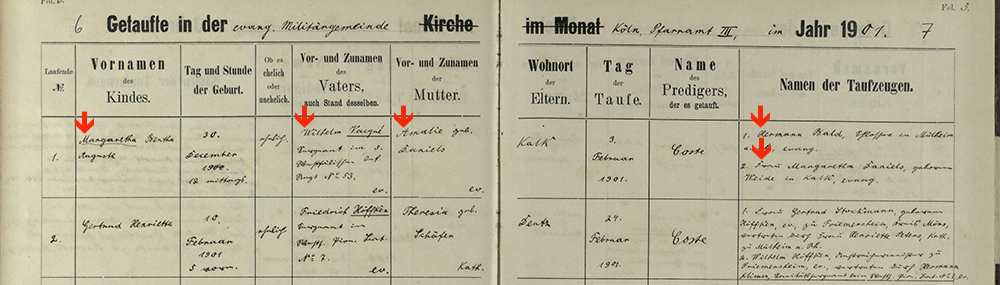 Fol. 3.
6 Getaufte in der evang. Militärgemeinde Kirche im Monat Köln, Pfarramt III, im Jahr 1901. 7
Laufende №
Vornamen des Kindes.
Tag und Stunde der Geburt.
Ob es ehelich oder unehelich.
Vor- und Zunamen des Vaters, auch Stand desselben.
Vor- und Zunamen der Mutter.
Wohnort der Eltern.
Tag der Taufe.
Name des Predigers, der es getauft.
Namen der Taufzeugen.
1.
Margaretha Bertha
Auguste
30.
December
1900
12 mittags.
ehelich
Wilhelm
Sergeant im 5.
Westfälischen Inf.
Regt № 53.
ev.
Amalie geb.
Daniels
ev.
Kalk
3.
Februar
1901.
Coste
1. Hermann Bald, Schlosser in Mülheim
evang.
2. Frau Margaretha Daniels, geborene
Weide in Kalk, evang.
2.
Gertrud Henriette
10.
Februar
1901
5 vorm.
ehelich
Friedrich Höffken
Sergeant im
Westf. Pion. Bat.
№ 7.
ev.
Theresia geb.
Schäfer
Kath.
Deutz
24.
Februar
1901.
Coste
1. Frau Gertrud Stockmann, geborene
Höffken, ev., zu Friemersheim, Kreis Mörs,
vertreten durch Frau Henriette Peters, Kath.
zu Mülheim a. Rh.
2. Wilhelm Höffken, zu
Friemersheim, ev., vertreten durch Hermann
beim Westf. Pion. Bat. № 7, ev.